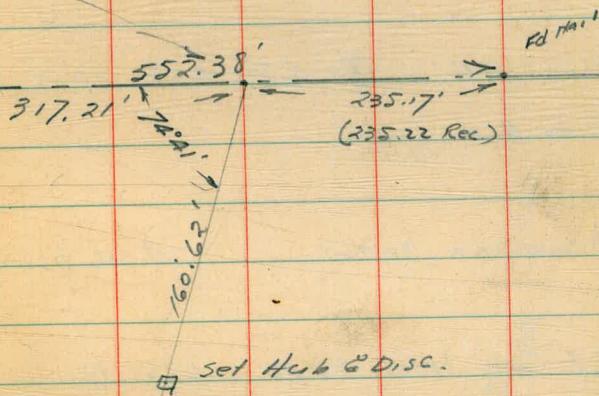 Fd Nail
552.38'
317.21'
235.17'
(235.22 Rec.)
74°41'
160.62'
Set Hub & Disc.